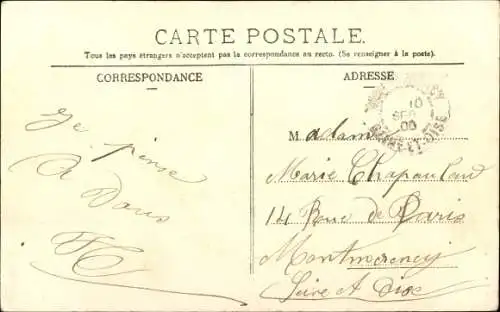 CARTE POSTALE.
Tous les pays étrangers n'acceptent pas la correspondance au recto. (Se renseigner à la poste).
CORRESPONDANCE
Je pense
A Vous
ADRESSE
10
SEPT
06
SEINE-ET-OISE
Madame
Marie Chapautard
14 Rue de Paris
Montmorency
Seine et Oise